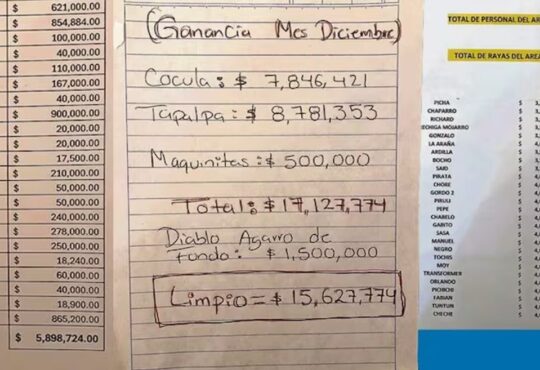 $ 621,000.00
$ 854,884.00
$ 100,000.00
$ 40,000.00
$ 110,000.00
$ 167,000.00
$ 40,000.00
$ 900,000.00
$ 20,000.00
$ 20,000.00
$ 17,500.00
$ 210,000.00
$ 50,000.00
$ 50,000.00
$ 240,000.00
$ 278,000.00
$ 250,000.00
$ 18,240.00
$ 60,000.00
$ 40,000.00
$ 18,900.00
$ 865,200.00
$ 5,898,724.00
(Ganancia Mes Diciembre)
Cocula: $ 7,846,421
Tapalpa: $ 8,781,353
Maquinitas: $ 500,000
Total: $ 17,127,774
Diablo Agarro de
Fondo: $ 1,500,000
Limpio = $ 15,627,774
TOTAL DE PERSONAL DEL AR
TOTAL DE RAYAS DEL AREA
PICHA $ 3,
CHAPARRO $ 3,
RICHARD $ 3,
ECHIGA MOJARRO $
GONZALO $
LA ARAÑA $
ARDILLA $
BOCHO $
SAID $
PIRATA $
CHORE $
GORDO 2 $
PIRULI $
PEPE $
CHABELO $
GABITO $
SASA $
MANUEL $
NEGRO $
TOCHIS $
MOY $
TRANSFORMER $
ORLANDO $
PICHICHI $
FABIAN $
TUNTUN $
CHECHE $